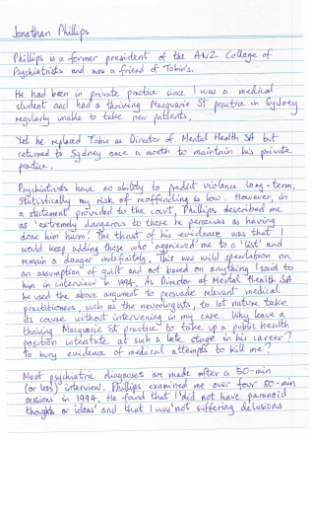 Jonathan Phillips
Phillips is a former president of the ANZ College of
Psychiatrists and was a friend of Tobin's.
He had been in private practice since I was a medical
student and had a thriving Macquarie St practice in Sydney
regularly unable to take new patients.
Yet he replaced Tobin as Director of Mental Health SA but
returned to Sydney once a month to maintain his private
practice.
Psychiatrists have no ability to predict violence long-term.
Statistically my risk of reoffending is low. However, in
a statement provided to the court, Phillips described me
as 'extremely dangerous to those he perceives as having
done him harm'. The thrust of his evidence was that I
would keep adding those who 'aggrieved' me to a 'list' and
remain a danger indefinitely. This was wild speculation on
an assumption of guilt and not based on anything I said to
him in interview in 1994. As Director of Mental Health SA
he used the above argument to persuade relevant medical
practitioners, such as the neurologists, to let nature take
its course without intervening in my care. Why leave a
thriving Macquarie St practice to take up a public health
position interstate at such a late stage in his career?
To bury evidence of medical attempts to kill me?
Most psychiatric diagnoses are made after a 50-min
(or less) interview. Phillips examined me over four 50-min
sessions in 1994. He found that I 'did not have paranoid
thoughts or ideas' and that I was 'not suffering delusions